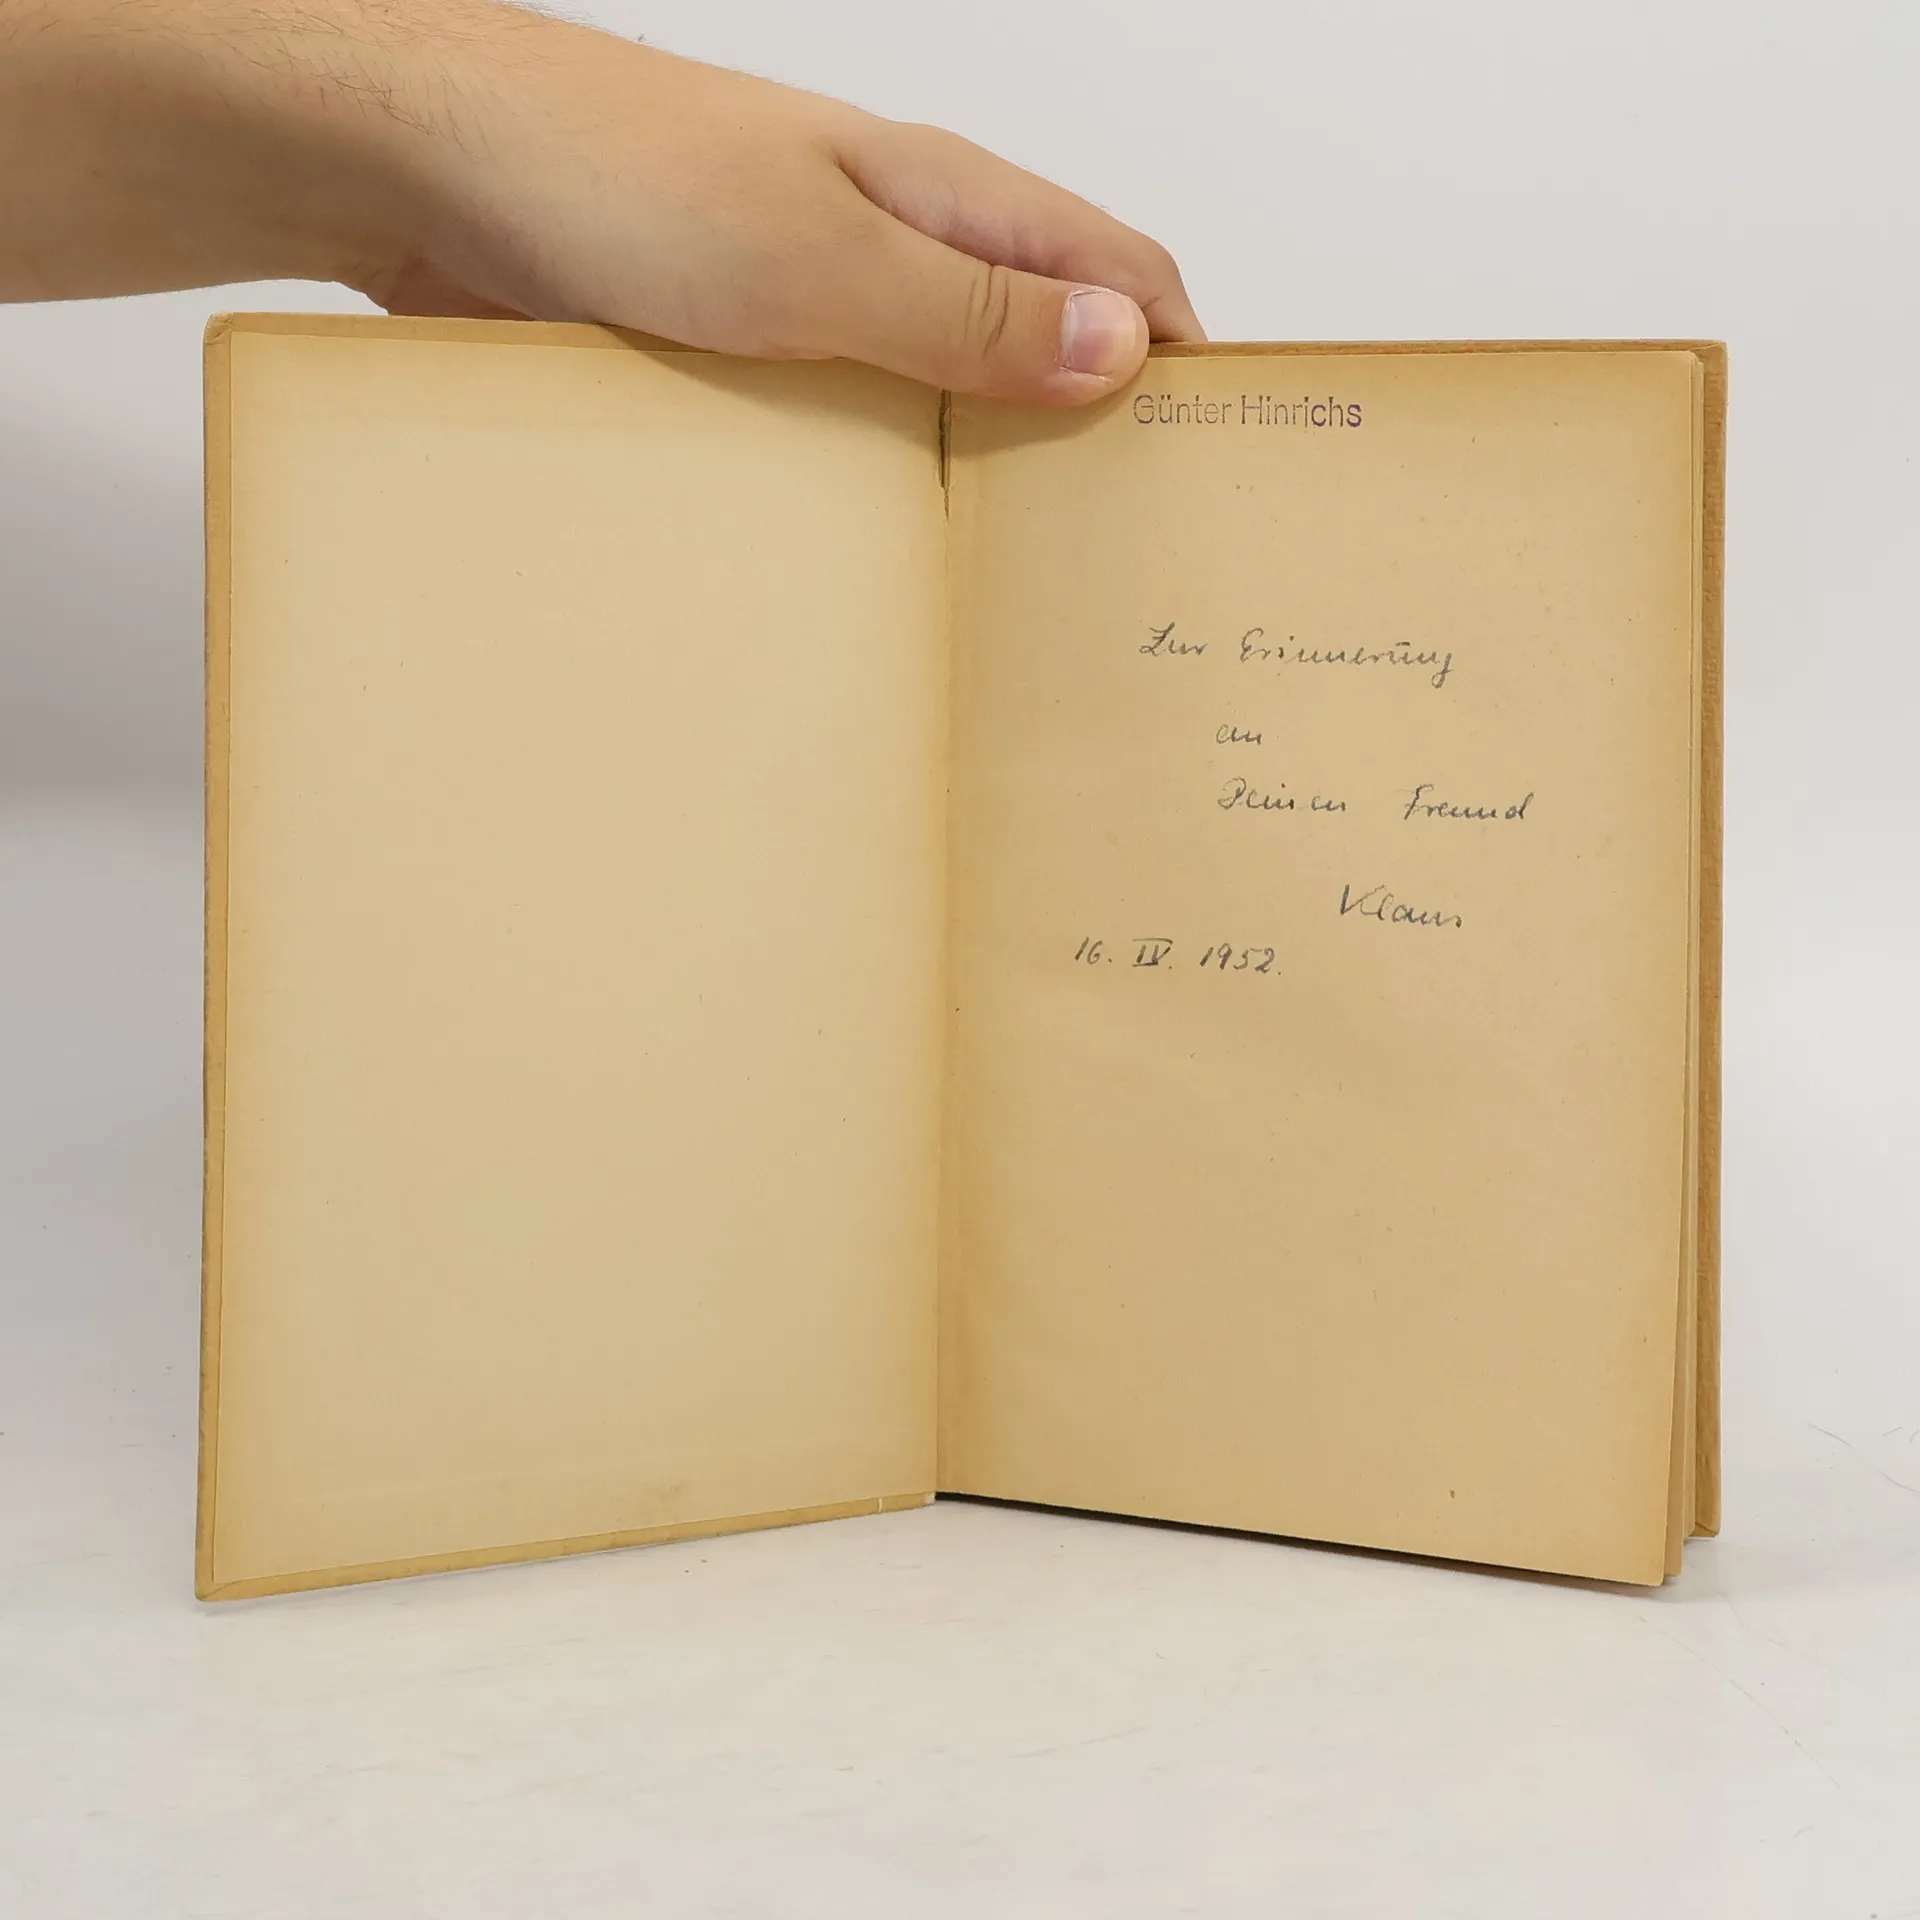 Günter Hinrichs
Zur Erinnerung
an
Deinen Freund
Klaus
16. IV. 1952.